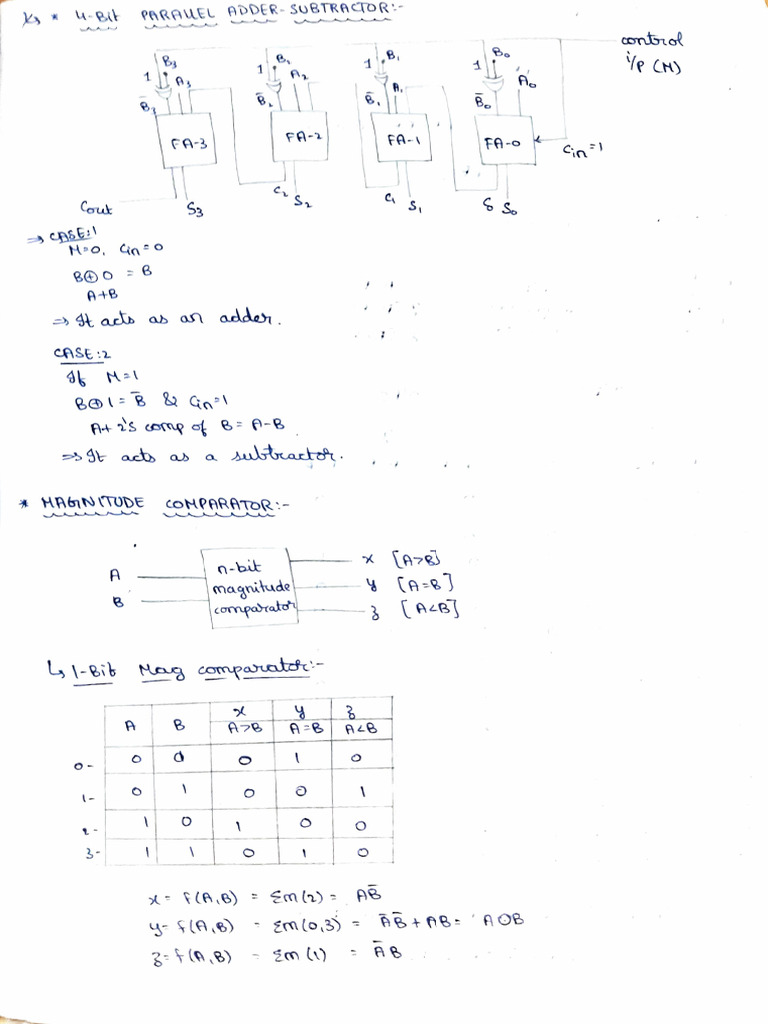 * 4-Bit PARALLEL ADDER-SUBTRACTOR:-
control
i/P (M)
B3 B2 B1 B0
1 A3 1 A2 1 A1 1 A0
B̅3 B̅2 B̅1 B̅0
FA-3 FA-2 FA-1 FA-0
Cin=1
Cout S3 C2 S2 C1 S1 S0
⇒ CASE:1
M=0, Cin=0
B⊕0 = B
A+B
⇒ It acts as an adder.
CASE:2
If M=1
B⊕1 = B̅ & Cin=1
A+ 2's comp of B = A-B
⇒ It acts as a subtractor.
* MAGINITUDE COMPARATOR:-
A
B
n-bit
magnitude
comparator
x [A>B]
y [A=B]
z [A<B]
↳ 1-Bit Mag comparator:-
A B x y z
A>B A=B A<B
0- 0 0 0 1 0
1- 0 1 0 0 1
2- 1 0 1 0 0
3- 1 1 0 1 0
x = f(A,B) = Σm(2) = AB̅
y = f(A,B) = Σm(0,3) = A̅B̅ + AB = A⊙B
z = f(A,B) = Σm(1) = A̅B